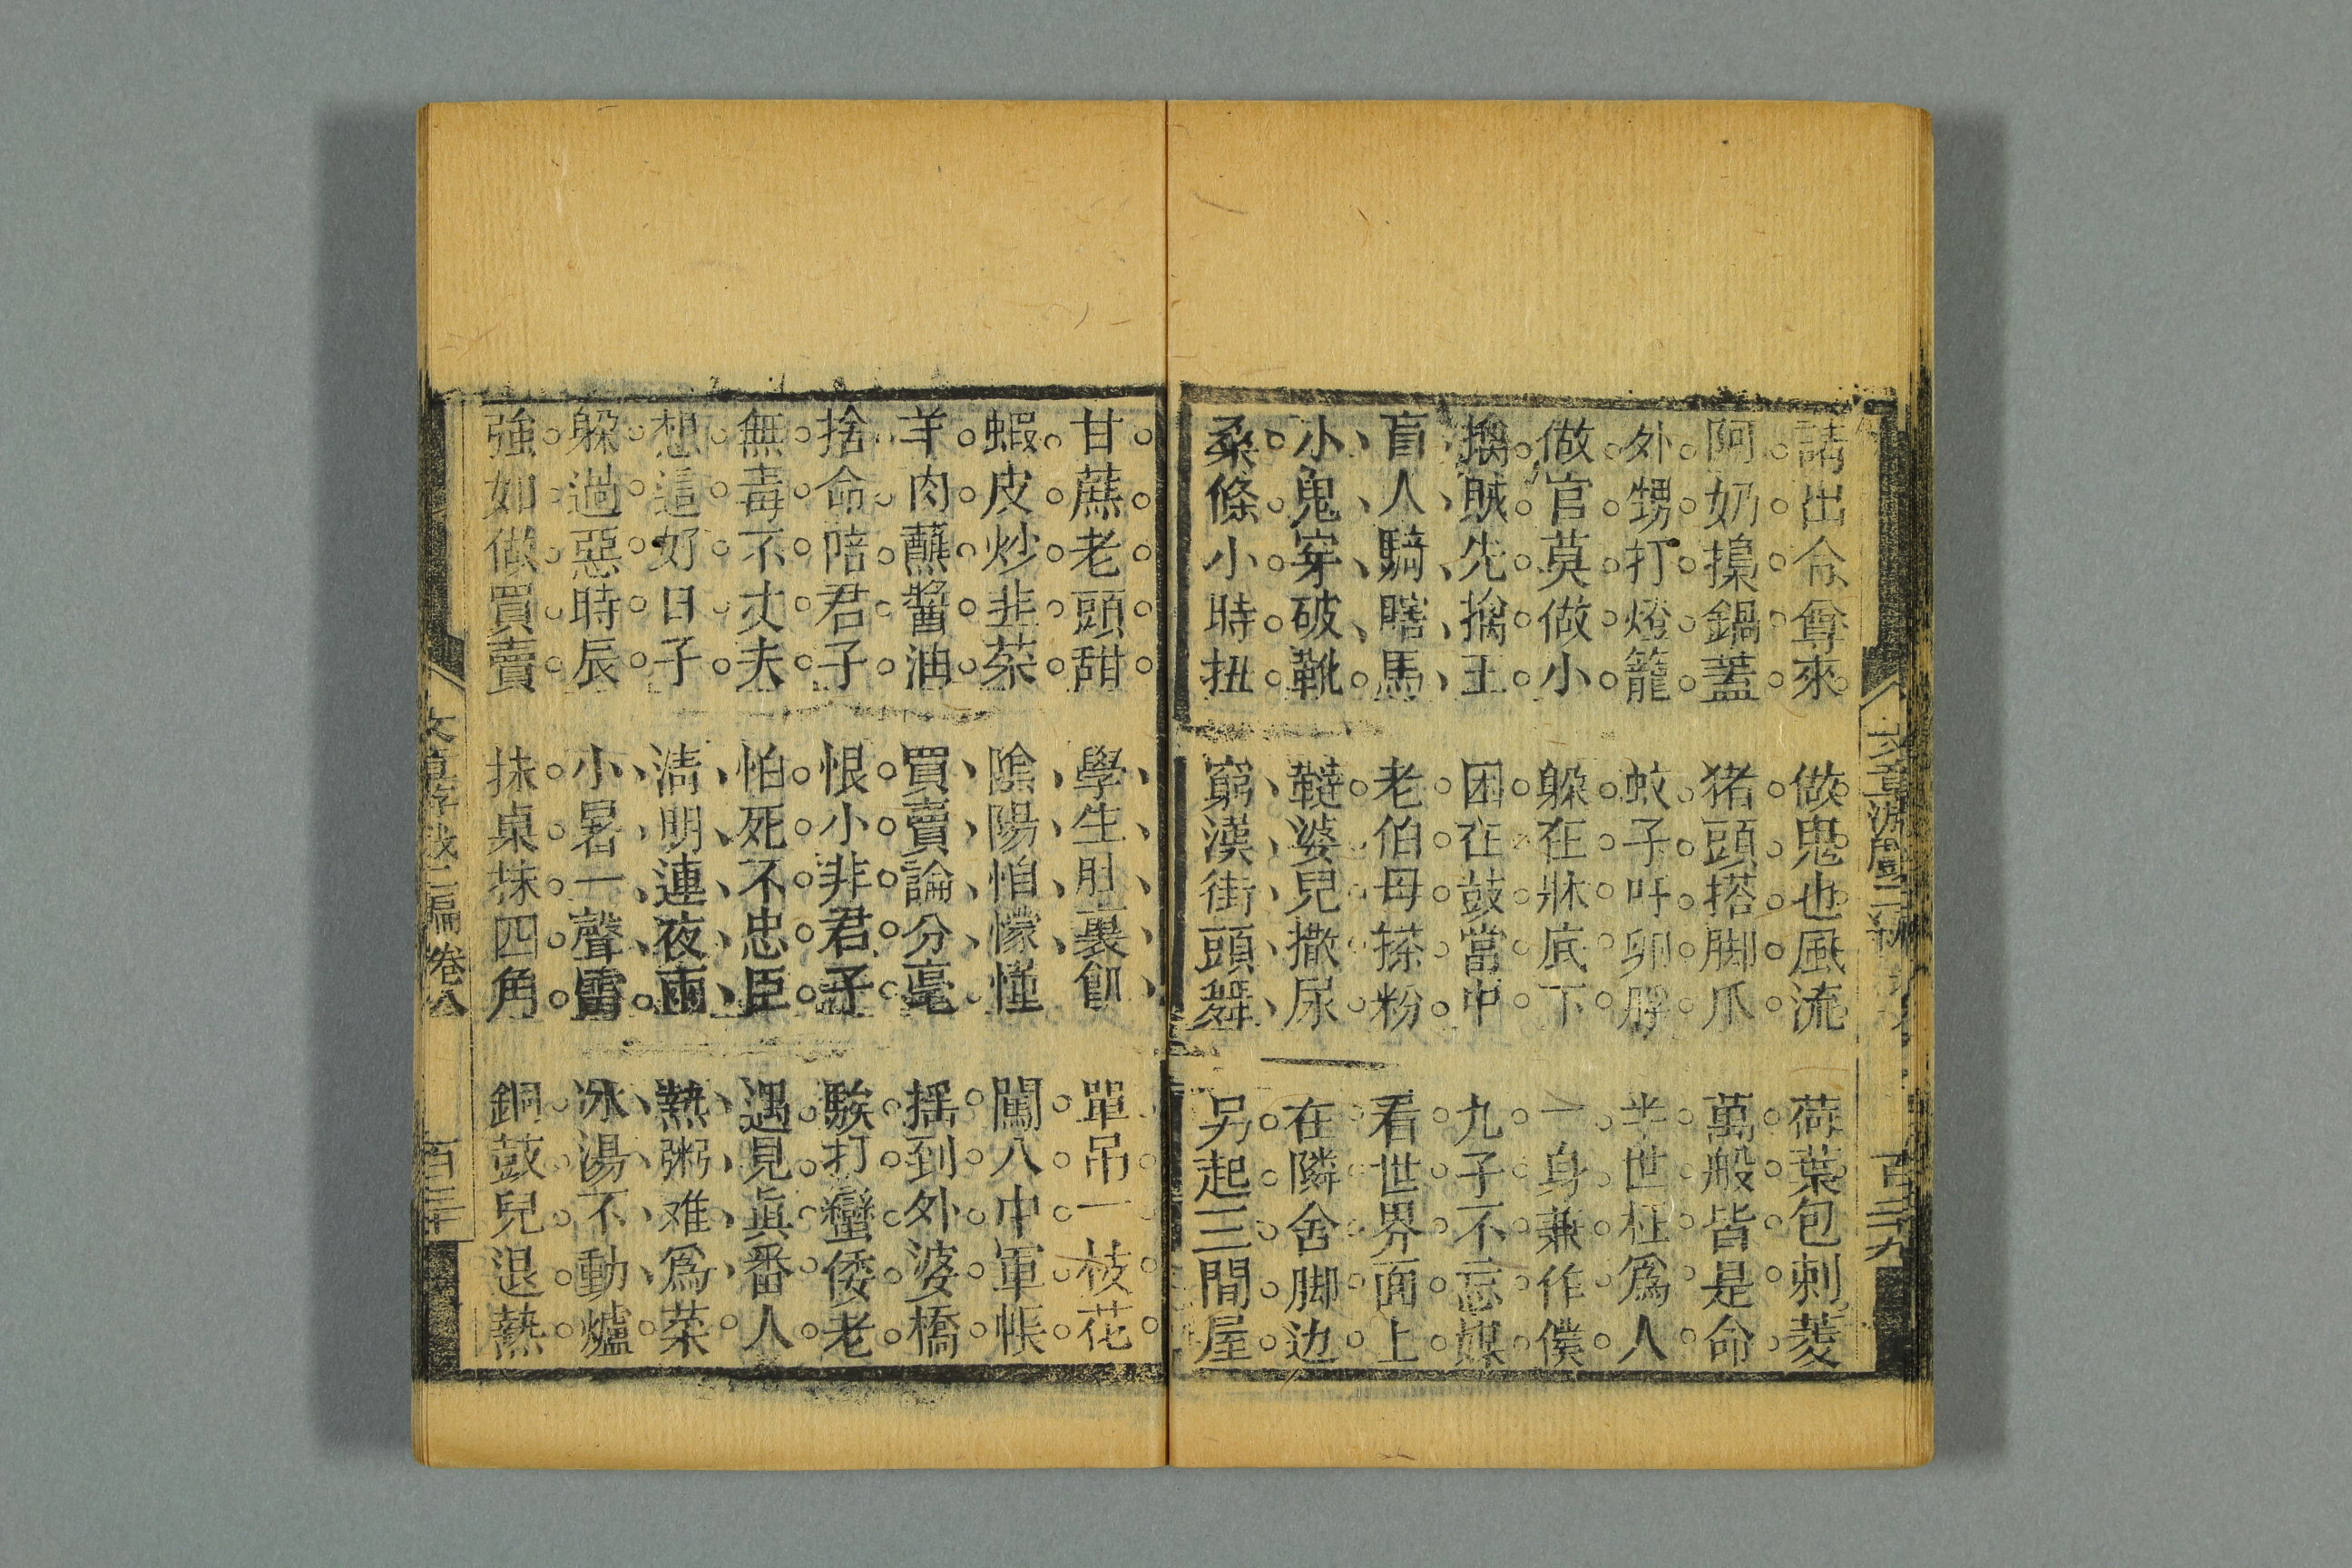 請出令尊來 做鬼也風流 荷葉包刺菱
阿奶搨鍋蓋 猪頭搭脚爪 萬般皆是命
外甥打燈籠 蚊子吁卵脬 半世枉爲人
做官莫做小 躱在牀底下 一身兼作僕
擒賊先擒王 困在鼓當中 九子不忘媒
盲人騎瞎馬 老伯母搽粉 看世界面上
小鬼穿破靴 韃婆兒撒尿 在隣舍脚边
桑條小時扭 窮漢街頭舞 另起三間屋
甘蔗老頭甜 學生肚裏飢 單吊一枝花
蝦皮炒韭菜 陰陽怕懞懂 闖入中軍帳
羊肉蘸醬油 買賣論分毫 摇到外婆橋
捨命陪君子 恨小非君子 騃打蠻倭老
無毒不丈夫 怕死不忠臣 遇見眞番人
想這好日子 清明連夜雨 熱粥难爲菜
躱過惡時辰 小暑一聲雷 冰湯不動爐
強如做買賣 抹桌抹四角 銅鼓兒退熱
文章游戲二編 卷八 百三十